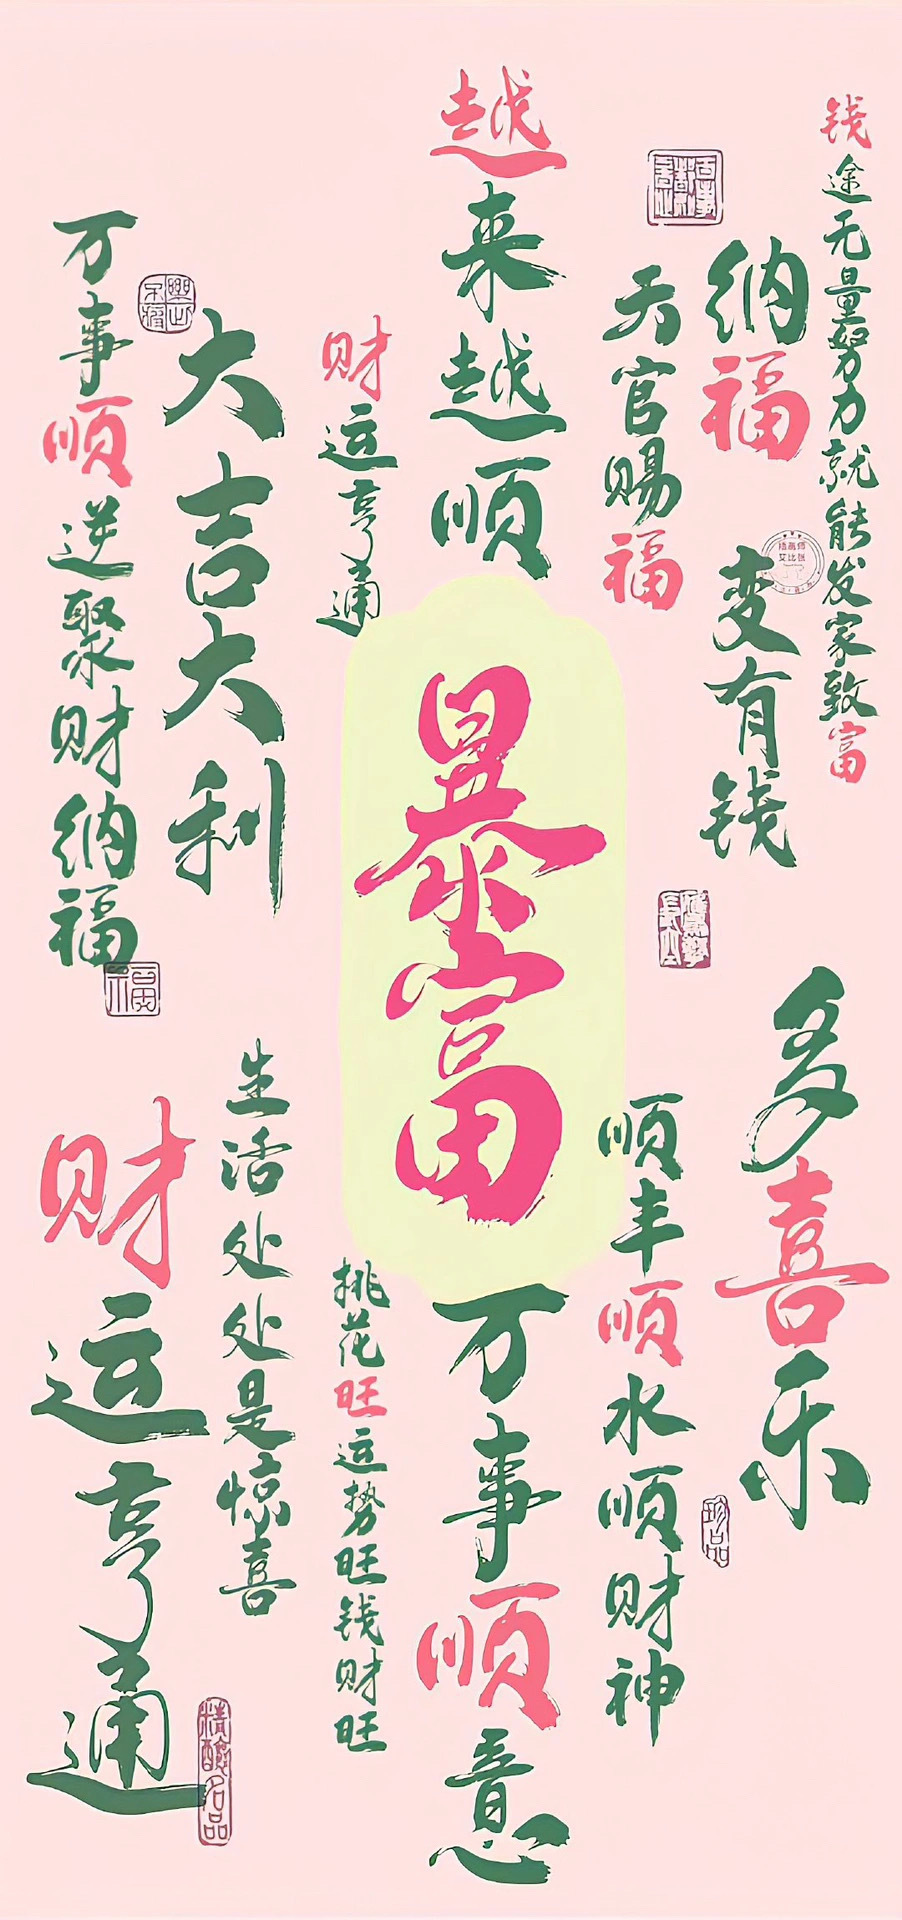 钱途无量努力就能发家致富
纳福
变有钱
天官赐福
越来越顺
财运亨通
大吉大利
万事顺遂聚财纳福
暴富
多喜乐
顺丰顺水顺财神
万事顺意
桃花旺运势旺钱财旺
生活处处是惊喜
财运亨通
福
珍品
精酿名品